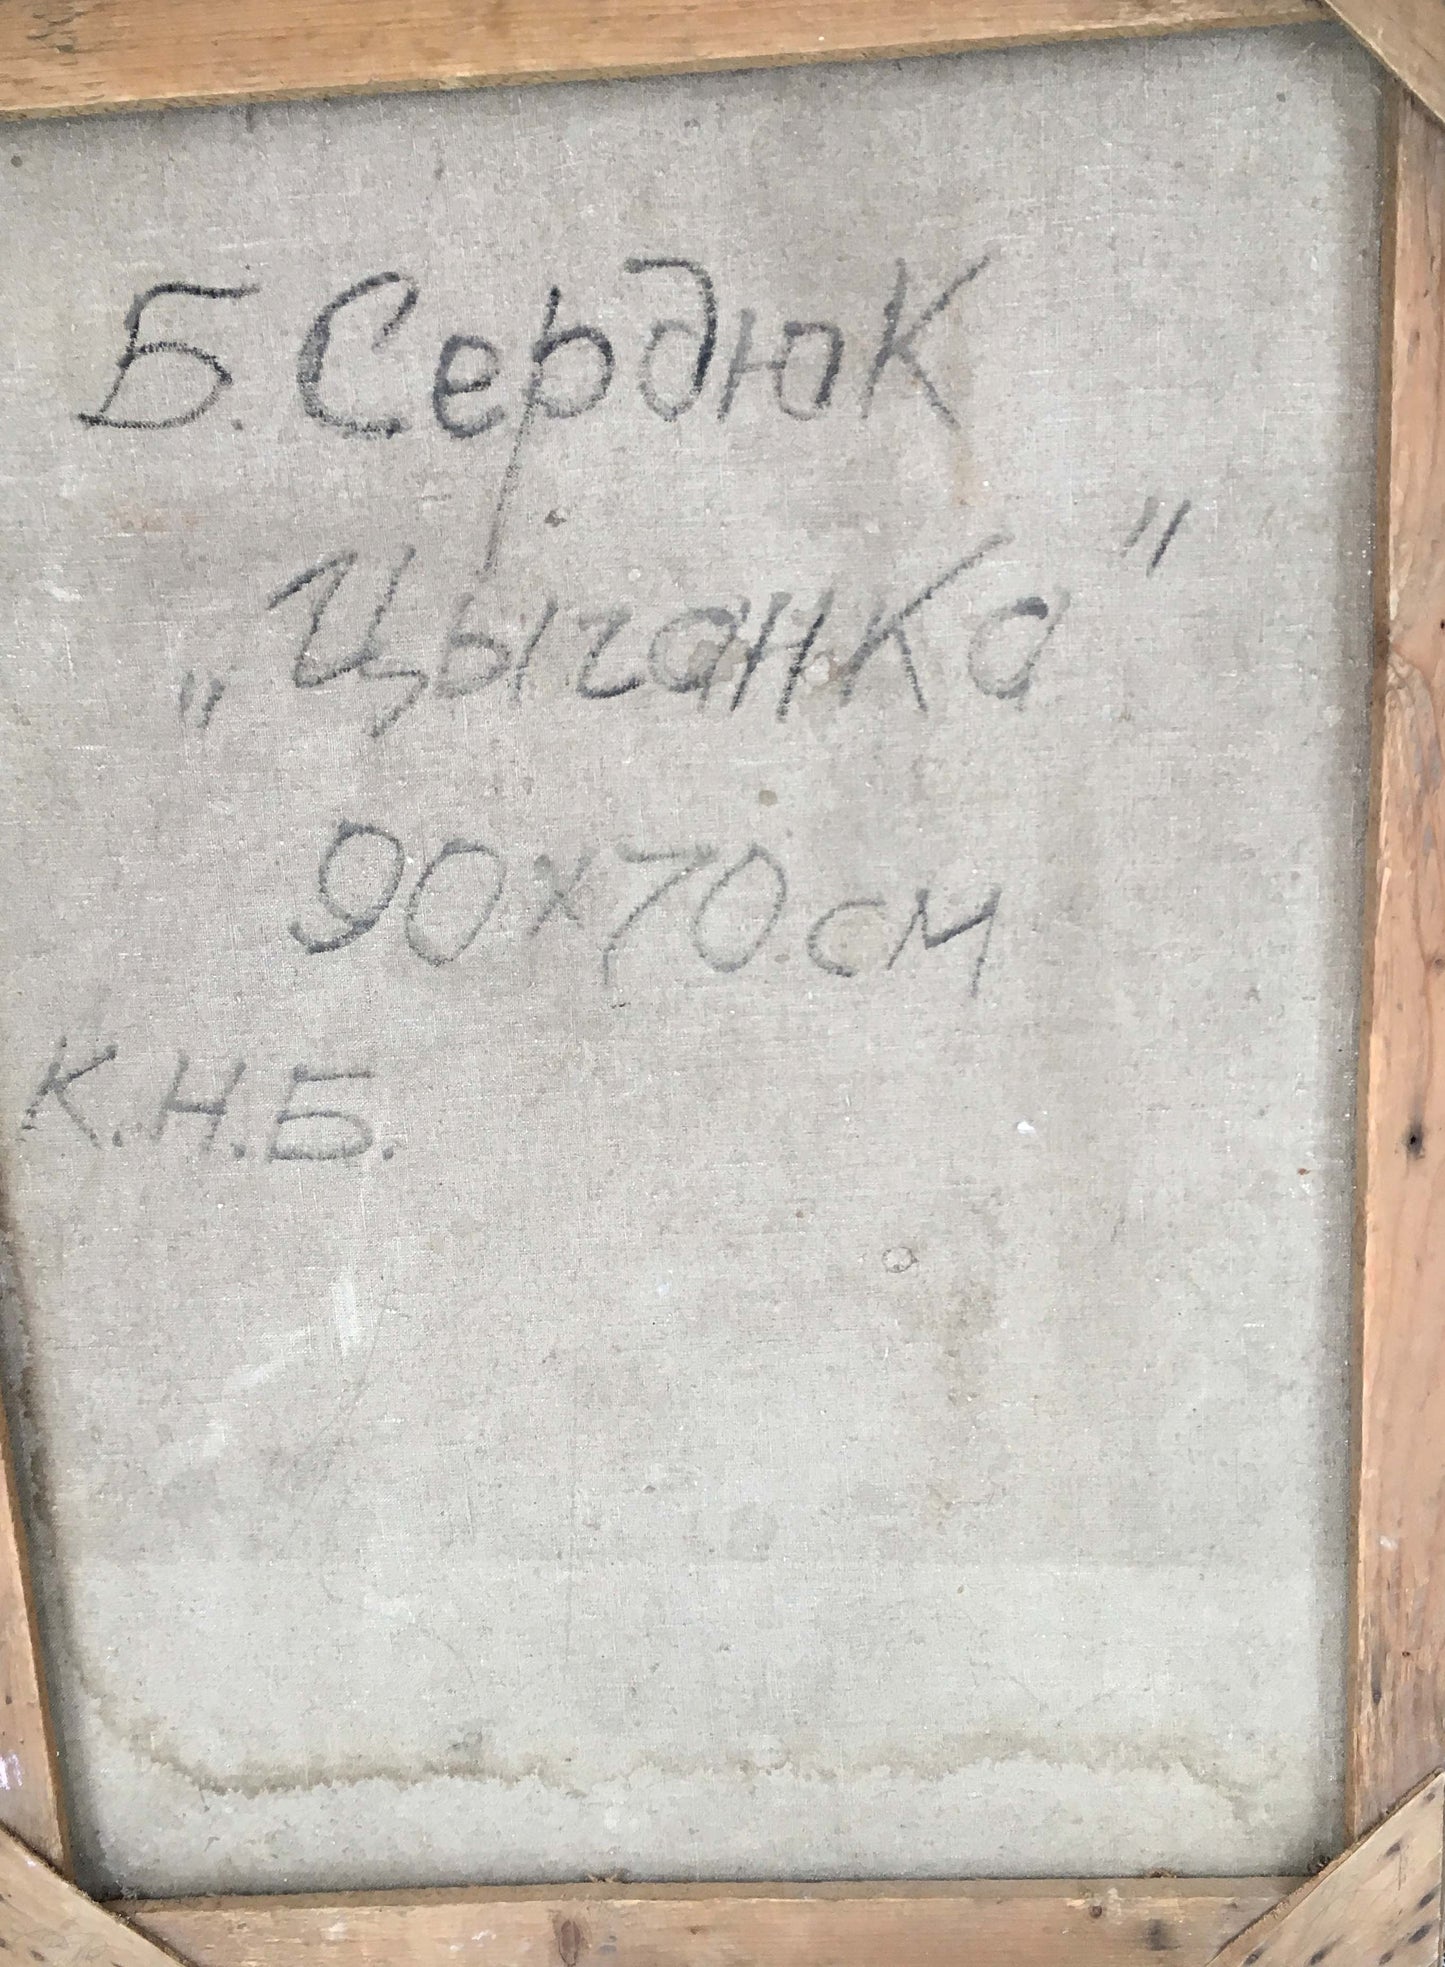 Б. Сердюк
„Цыганка"
90х70 см
К.Н.Б.